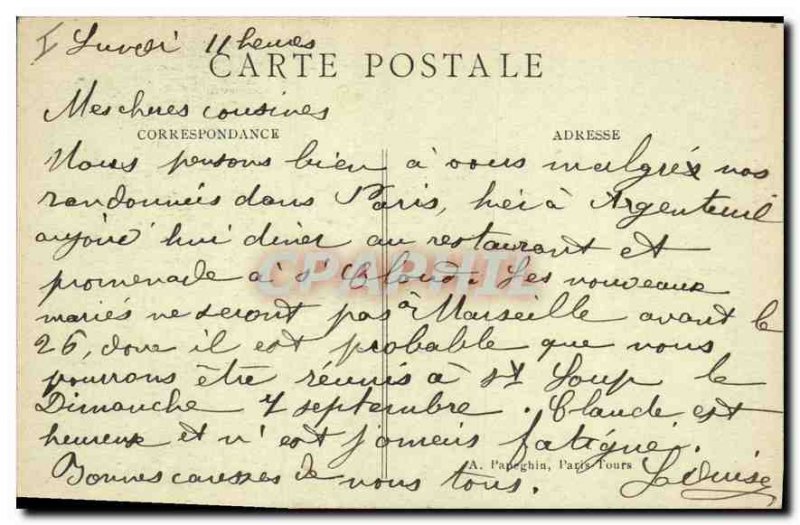 Lundi 11 heures
CARTE POSTALE
Mes cheres cousines
CORRESPONDANCE
ADRESSE
Nous pensons bien à vous malgré nos
randonnées dans Paris, hier à Argenteuil
aujourd'hui diner au restaurant et
promenade à St Cloud. Les nouveaux
mariés ne seront pas à Marseille avant le
26, donc il est probable que nous
pourrons être réunis à St Loup le
Dimanche 7 septembre. Claude est
heureux et n'est jamais fatigué.
A. Papeghin, Paris-Tours
Bonnes caresses de nous tous. Louise
CPARAMA